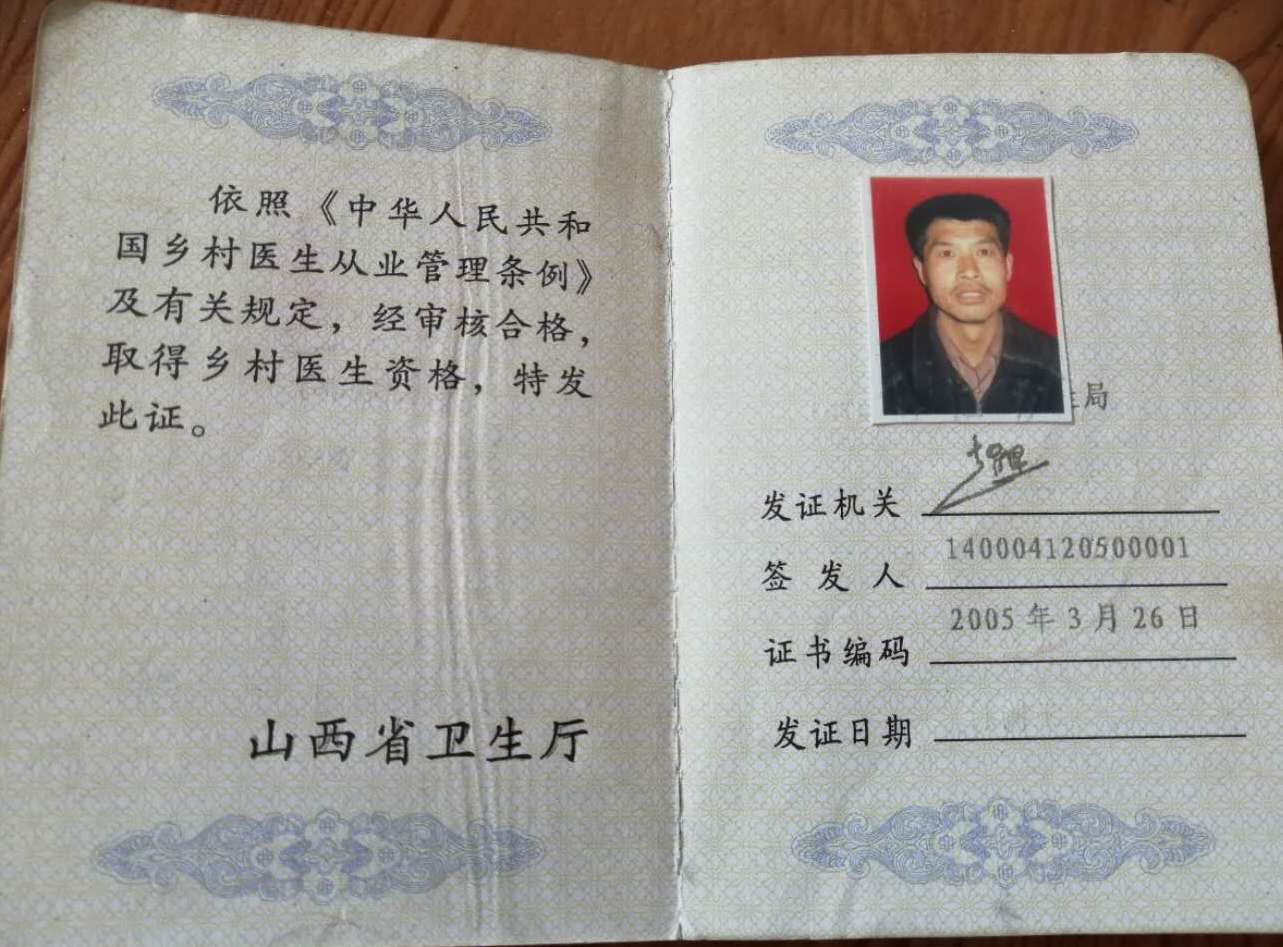 依照《中华人民共和
国乡村医生从业管理条例》
及有关规定，经审核合格，
取得乡村医生资格，特发
此证。
山西省卫生厅
生局
发证机关
140004120500001
签发人
2005年3月26日
证书编码
发证日期